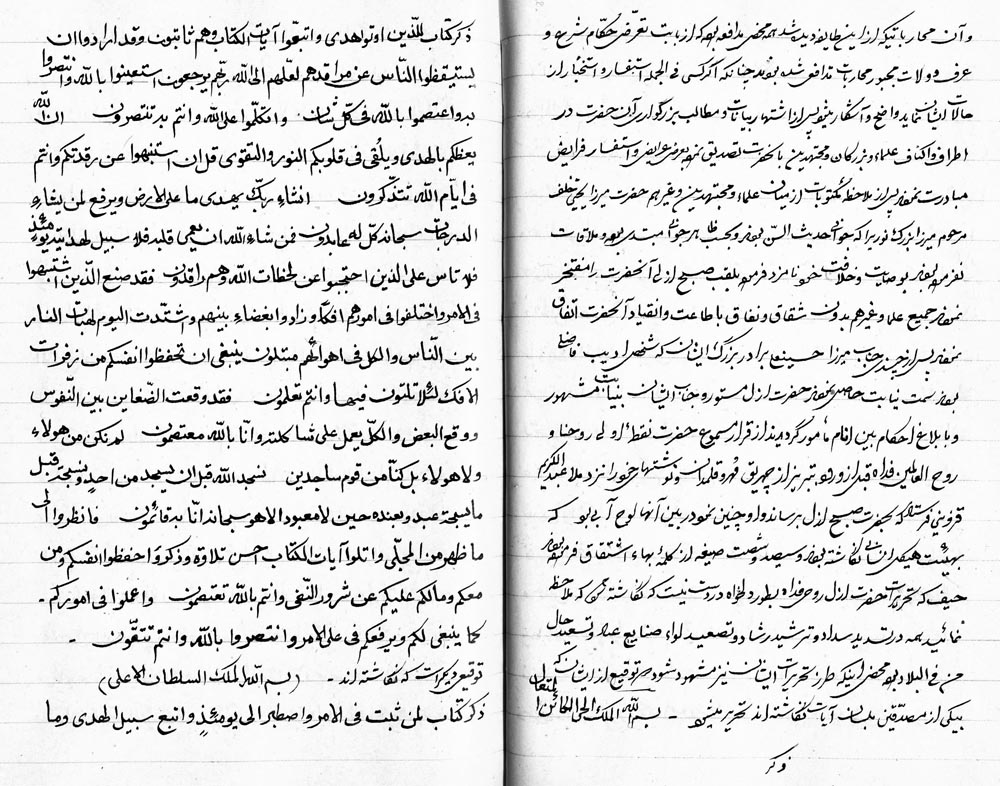 و آن محارباتیکه از این طایفه دیده شد همه محض مدافعه بود که از بابت تعرّض حکّام شرع و
عرف و ولات مجبور بمحاربات تدافعی شده بودند چنانکه اگر کسی فی الجمله استفسار و استخبار از
حالات ایشان نماید واضح و آشکار میشود پس از اشتهار بیانات و مطالب بزرگواری آن حضرت در
اطراف و اکناف علماء و بزرگان و مجتهدین بآنحضرت تصدیق نموده بعرض عرایض و استفسار فرایض
مبادرت نمودند پس از ملاحظه مکتوبات از میان علماء و مجتهدین و غیرهم حضرت میرزا یحیی خلف
مرحوم میرزا بزرگ نوری را که جوانی حدیث السنّ بودند و بحسب ظاهر جوانی مبتدی بوده و ملاقات
نفرموده بودند بوصایت و خلافت خود نامزد فرموده بلقب صبح ازلی آنحضرت را مفتخر
نمودند جمیع علما و غیرهم بدون شقاق و نفاق باطاعت و انقیاد آنحضرت اتّفاق
نمودند پس از چندی جناب میرزا حسینعلی برادر بزرگ ایشان که شخص ادیب فاضلی
بودند سمت نیابت حاصل نمودند حضرت ازل مستور و جناب ایشان بنیابت مشهور
و بابلاغ احکام بین انام مأمور گردیدند از قرار مسموع حضرت نقطه اولی روحنا و
روح العالمین فداه قبل از ورود تبریز از چهریق مهر و قلمدان و نوشتهای خود را نزد ملا عبدالکریم
قزوینی فرستاد که بحضرت صبح ازل برساند و او چنین نمود در بین آنها لوح آبی بود که
بهیئت هیکل انسانی نگاشته بودند و سیصد و شصت صیغه از کلمه بهاء اشتقاق فرموده بودند
حیف که تحریرات حضرت ازل روحی فداه بطور دلخواه در دست نیست که نگاشته شود که ملاحظه
نمائید همه در تسدید سداد و ترشید رشاد و تصعید لواء صنایع عباد و تسعید حال
من فی البلاد بوده محض اینکه طرز تحریرات ایشان نیز مشهود شود صورت توقیعی از ایشان که
بیکی از مصدّقین بلسان آیات نگاشته اند تحریر میشود - بسم الله الملک الحیّ الحائن المتعال
ذکر
ذکر کتاب للّذین اوتوا هدی و اتبعوا آیات الکتاب و هم ثابتون و قد ارادوا ان
یستیقظوا النّاس عن مراقدهم لعلّهم الی الله ربّهم یرجعون استعینوا بالله و انتصروا
به و اعتصموا بالله فی کلّ شأن و اتکلوا علی الله و انتم به تنتصرون ان الله
یعظکم بالهدی و یلقی فی قلوبکم النور و التقوی قل ان استنبهوا عن رقدتکم و انتم
فی ایّام الله تتذکّرون انشاء ربّک یهدی ما علی الارض و یرفع لمن یشاء
الدرجات سبحانه کلّ له عابدون فمن شاء الله ان یعمی قلبه فلا سبیل لهدایته یومئذٍ
فلا تأس علی الذین احتجبوا عن لحظات الله و هم راقدون فقد صنع الذین اشتبهوا
فی الامر و اختلفوا فی امورهم افکاً و زادوا بغضاء بینهم و اشتدت الیوم لهبات النار
بین النّاس و الکل فی اهوائهم مبتلون ینبغی ان تحفظوا انفسکم من زفرات
الافک لئلا تلتون فیها و انتم تعلمون فقد وقعت الضغاین بین النّفوس
و وقع البعض و الکلّ یعمل علی شاکلته و انّا بالله معتصمون لم نکن من هولاء
و لا هولاء بل کنّا من قوم ساجدین نسجد الله قبل ان یسجد من احد و نسجد قبل
ما یسجد عبد و نعبده حین لا معبود الا هو سبحانه انّا به قائمون فانظروا الی
ما ظهر من المجلّی و اتلوا آیات الکتاب احسن تلاوة و ذکر و احفظوا انفسکم و من
معکم و ما لکم علیکم عن شرور النّفی و انتم بالله تعتصمون و اعملوا فی امورکم -
کما ینبغی لکم و یرفعکم فی علی الامر و انتصروا بالله و انتم تتقّون -
توقیع دیگر است که نگاشته اند - (بسم الله الملک السلطان الاعلی)
ذکر کتاب لمن ثبت فی الامر و اصطبر الی یومئذٍ و اتبع سبیل الهدی و ما